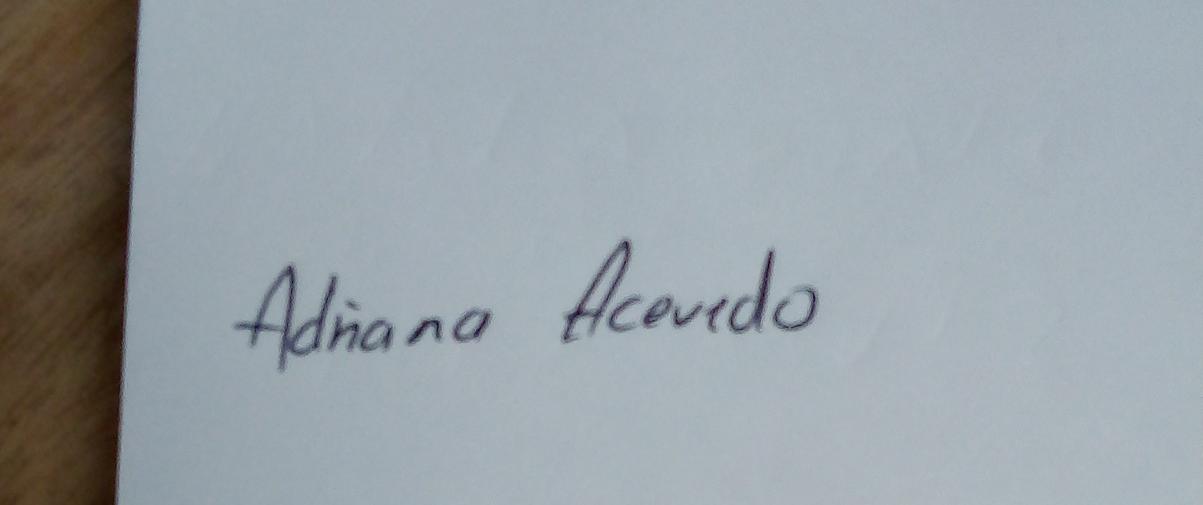 Adriana Acevedo